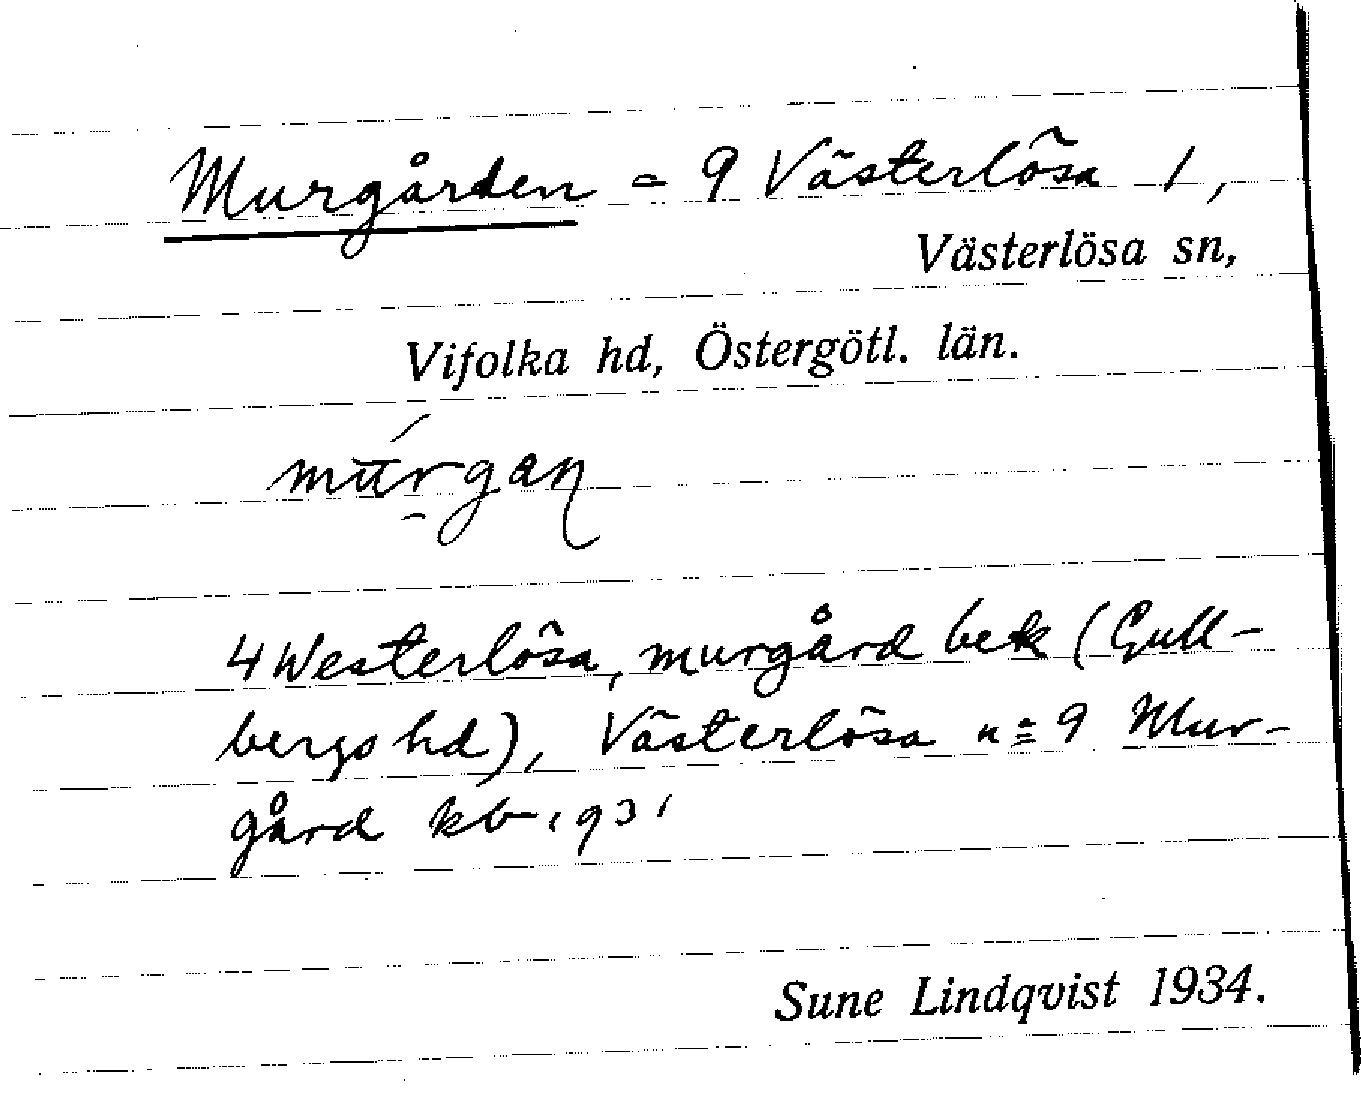 Murgården = 9 Västerlösa 1,
Västerlösa sn,
Vifolka hd, Östergötl. län.
mūrgaɳ
4 Westerlösa, murgård bek (Gull-
bergs hd), Västerlösa n:o 9 Mur-
gård kb 1931
Sune Lindqvist 1934.